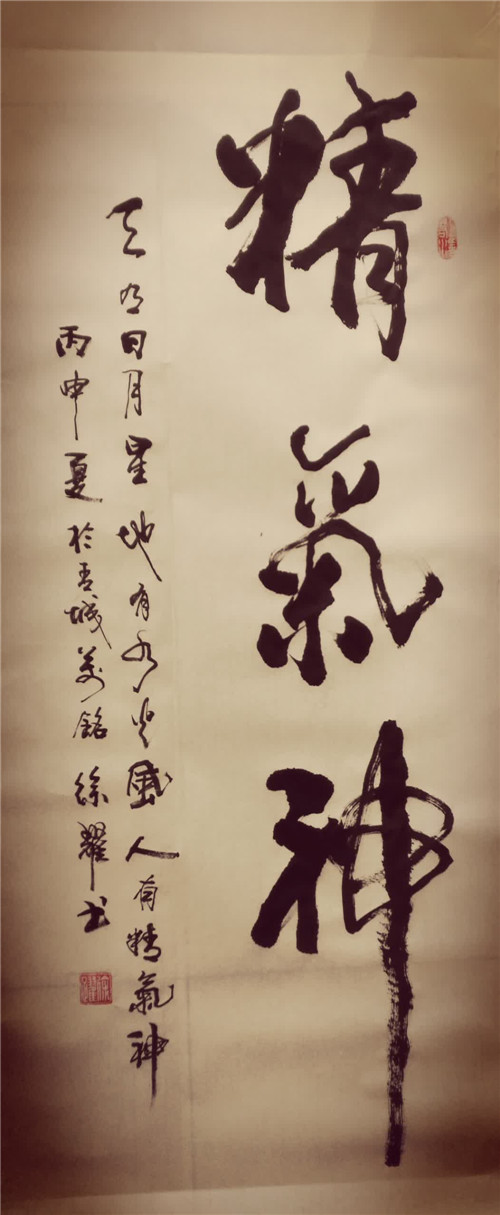 精氣神
天有日月星地有水火風人有精氣神
丙申夏於青城萬銘徐耀書